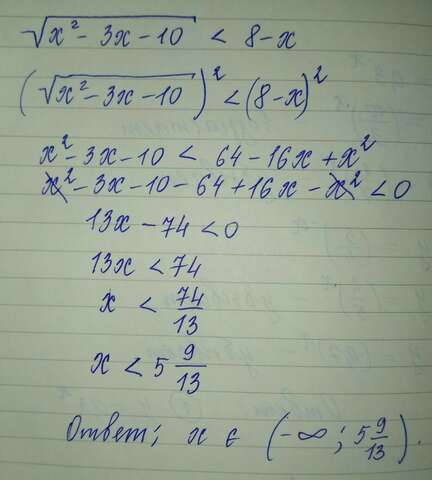 √(x² - 3x - 10) < 8 - x
(√(x² - 3x - 10))² < (8 - x)²
x² - 3x - 10 < 64 - 16x + x²
x² - 3x - 10 - 64 + 16x - x² < 0
13x - 74 < 0
13x < 74
x < 74/13
x < 5 9/13
Ответ; x ∈ (-∞; 5 9/13).